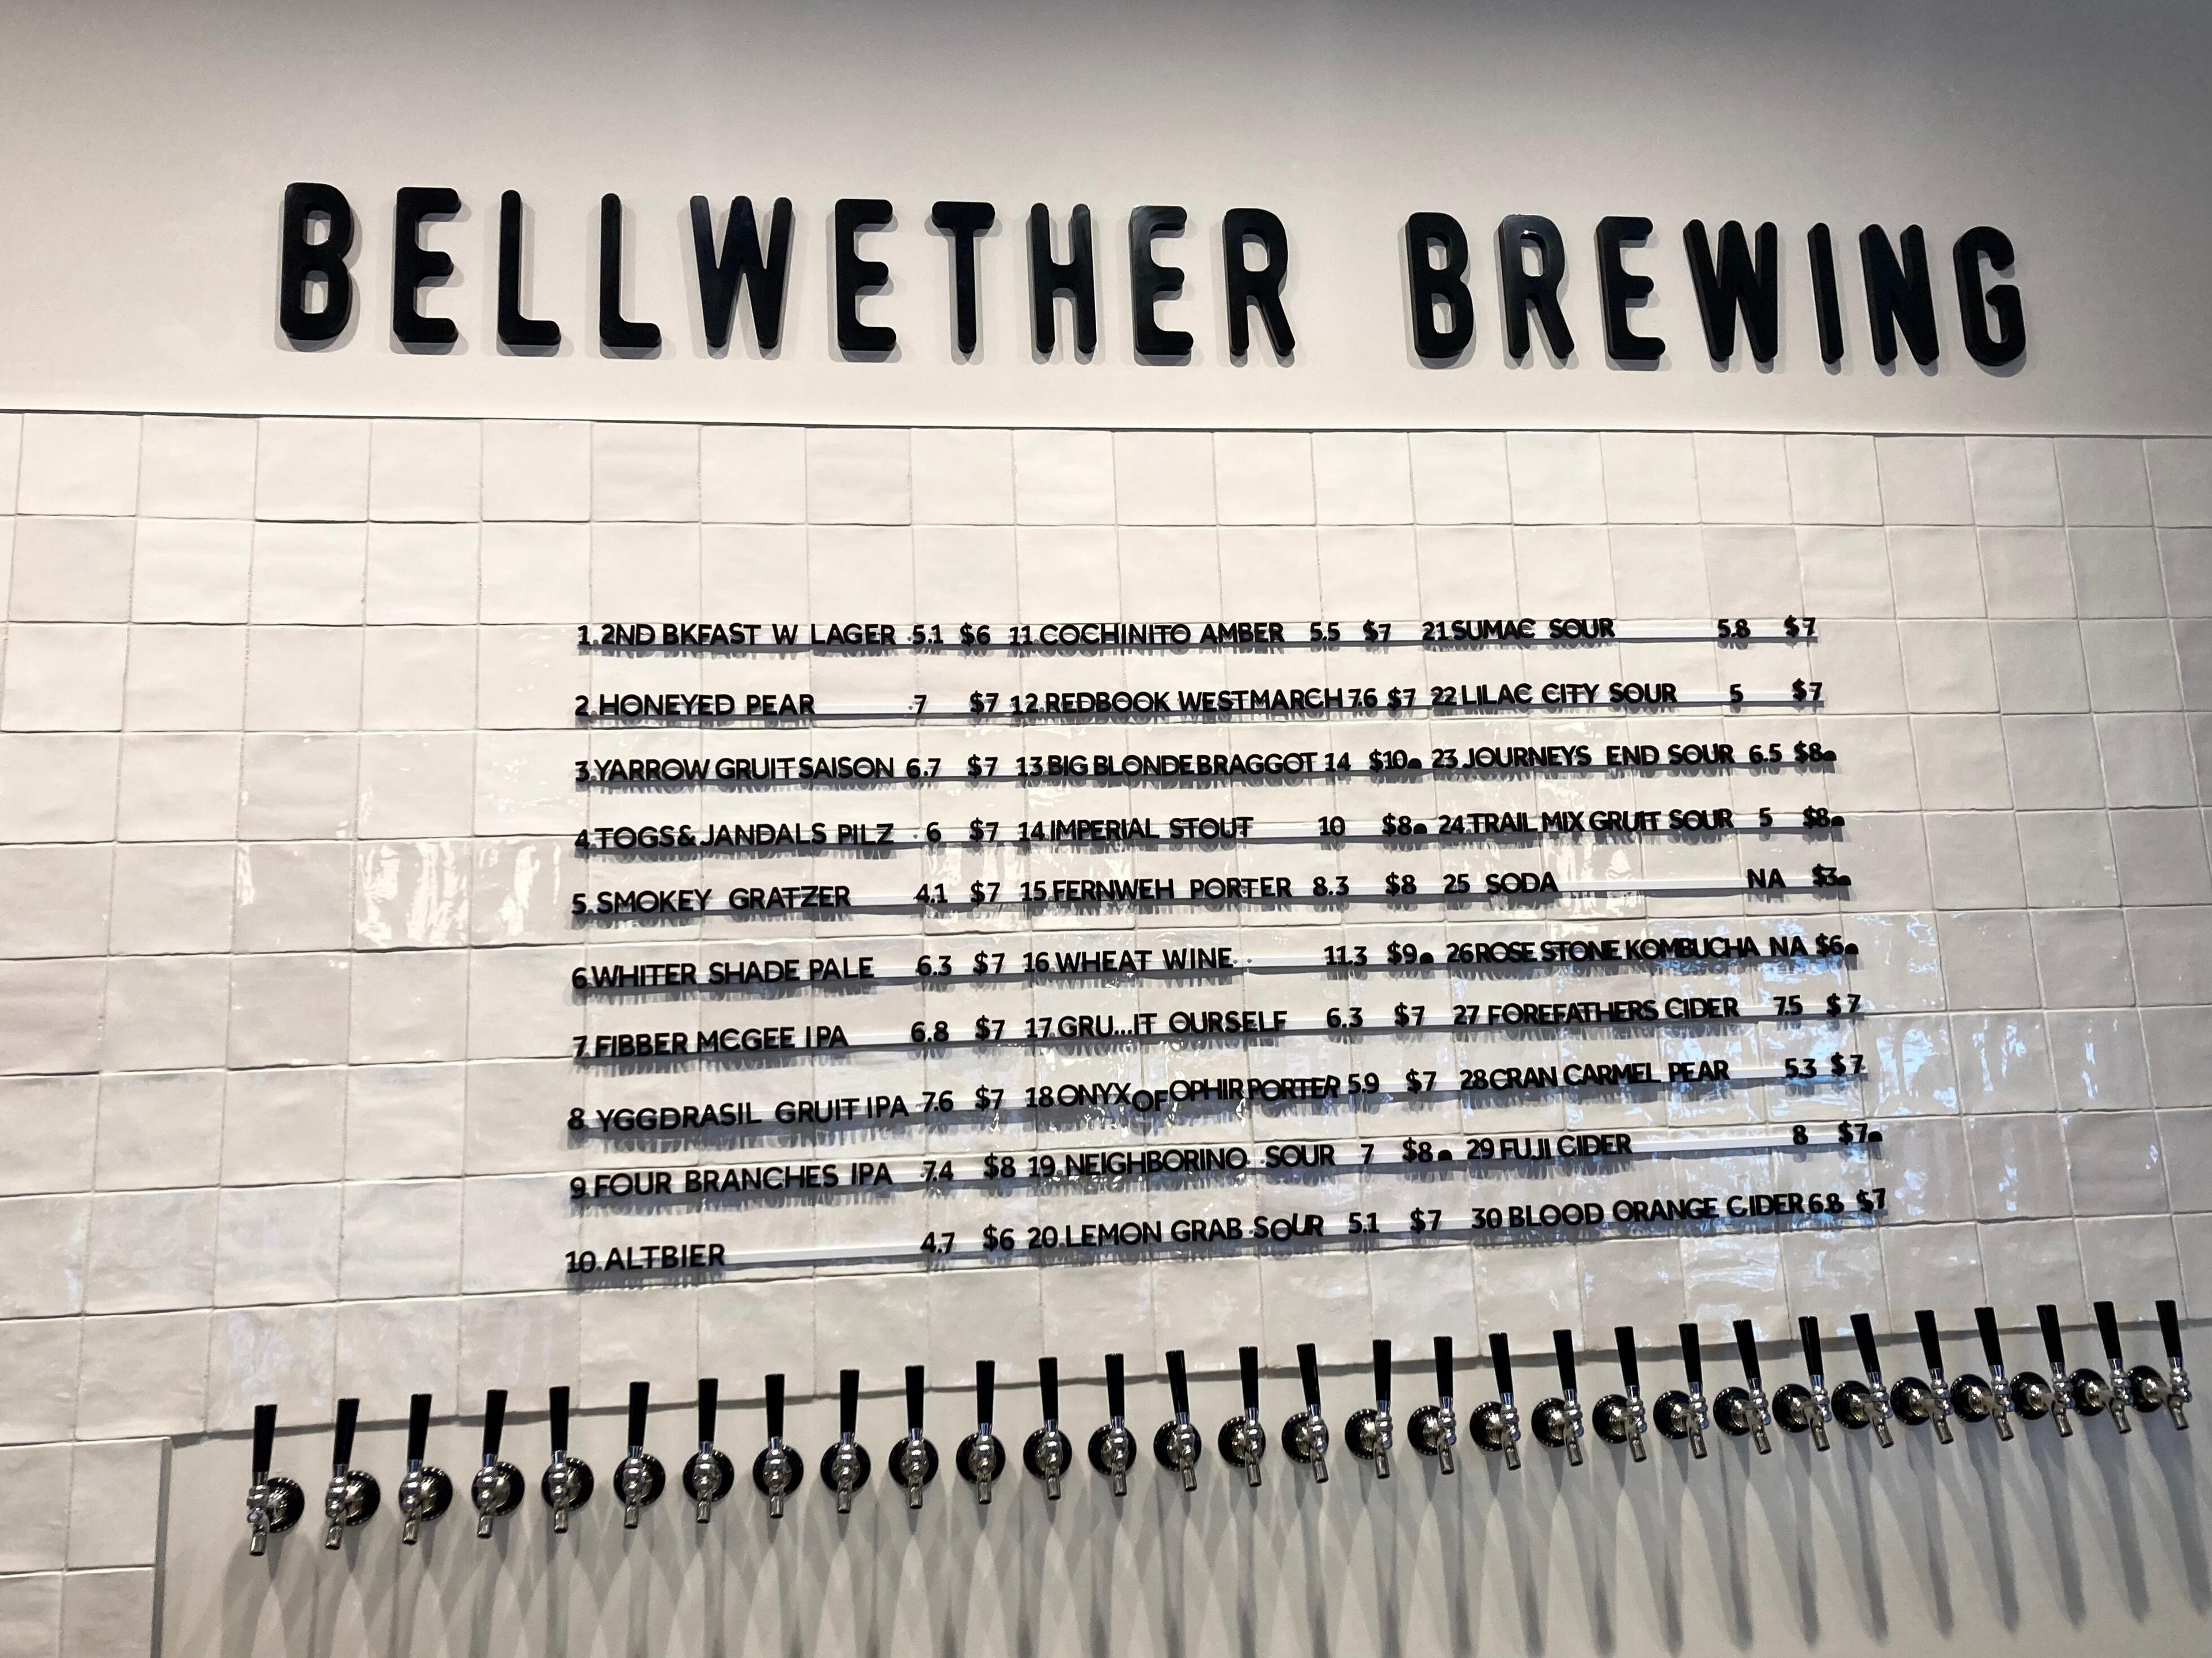 BELLWETHER BREWING
1.2ND BKFAST W LAGER 5.1 $6
2.HONEYED PEAR 7 $7
3.YARROW GRUIT SAISON 6.7 $7
4.TOGS&JANDALS PILZ 6 $7
5.SMOKEY GRATZER 4.1 $7
6.WHITER SHADE PALE 6.3 $7
7.FIBBER MCGEE IPA 6.8 $7
8.YGGDRASIL GRUIT IPA 7.6 $7
9.FOUR BRANCHES IPA 7.4 $8
10.ALTBIER 4.7 $6
11.COCHINITO AMBER 5.5 $7
12.REDBOOK WESTMARCH 7.6 $7
13 BIG BLONDE BRAGGOT 14 $10
14.IMPERIAL STOUT 10 $8
15.FERNWEH PORTER 8.3 $8
16.WHEAT WINE 11.3 $9
17.GRU...IT OURSELF 6.3 $7
18 ONYX OF OPHIR PORTER 5.9 $7
19.NEIGHBORINO SOUR 7 $8
20.LEMON GRAB SOUR 5.1 $7
21 SUMAC SOUR 5.8 $7
22 LILAC CITY SOUR 5 $7
23 JOURNEYS END SOUR 6.5 $8
24.TRAIL MIX GRUIT SOUR 5 $8
25 SODA NA $3
26 ROSE STONE KOMBUCHA NA $6
27 FOREFATHERS CIDER 7.5 $7
28 CRAN CARMEL PEAR 5.3 $7
29 FUJI CIDER 8 $7
30 BLOOD ORANGE CIDER 6.8 $7